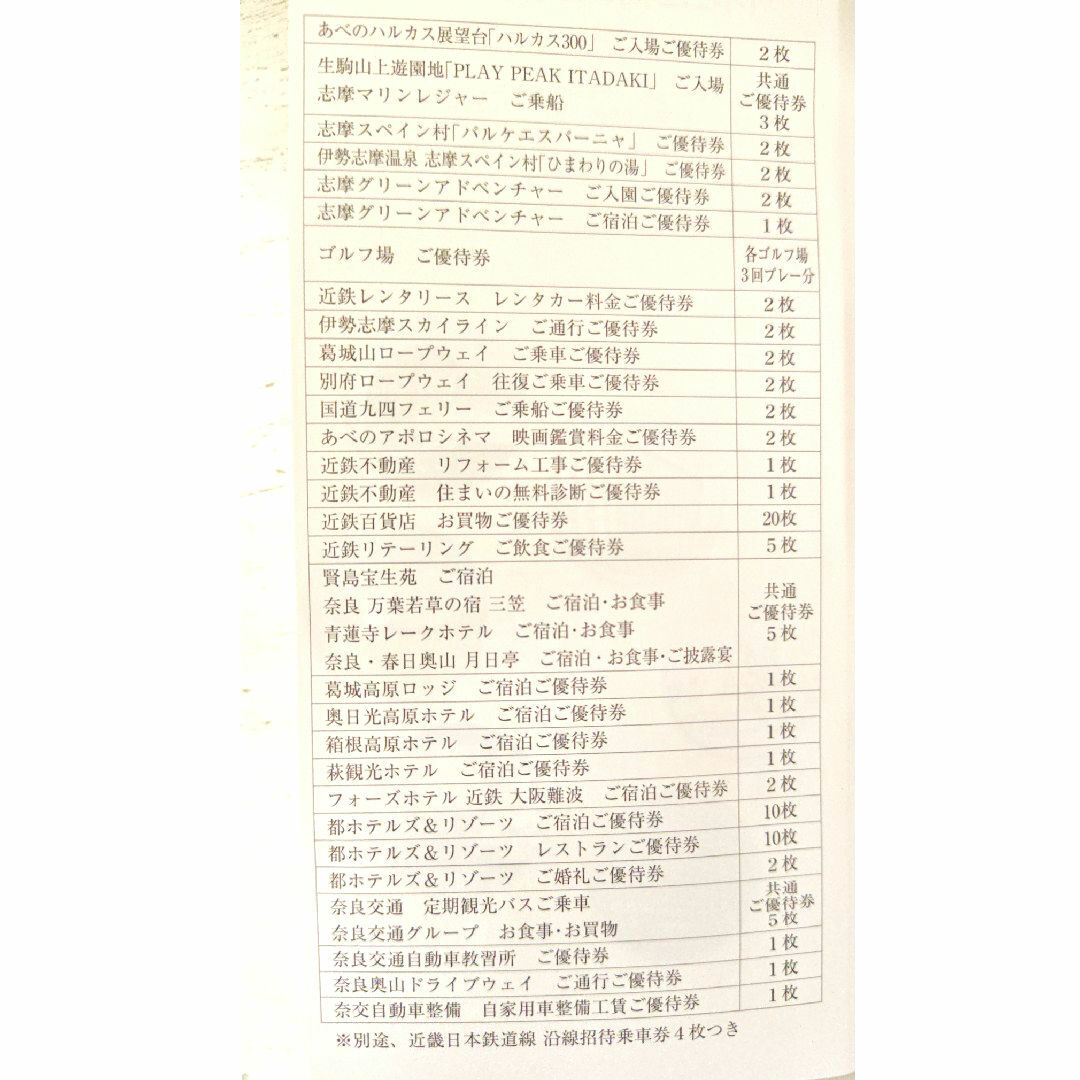 あべのハルカス展望台「ハルカス300」　ご入場ご優待券　2枚
生駒山上遊園地「PLAY PEAK ITADAKI」　ご入場　共通
志摩マリンレジャー　ご乗船　ご優待券
3枚
志摩スペイン村「パルケエスパーニャ」　ご優待券　2枚
伊勢志摩温泉 志摩スペイン村「ひまわりの湯」　ご優待券　2枚
志摩グリーンアドベンチャー　ご入園ご優待券　2枚
志摩グリーンアドベンチャー　ご宿泊ご優待券　1枚
ゴルフ場　ご優待券　各ゴルフ場
3回プレー分
近鉄レンタリース　レンタカー料金ご優待券　2枚
伊勢志摩スカイライン　ご通行ご優待券　2枚
葛城山ロープウェイ　ご乗車ご優待券　2枚
別府ロープウェイ　往復ご乗車ご優待券　2枚
国道九四フェリー　ご乗船ご優待券　2枚
あべのアポロシネマ　映画鑑賞料金ご優待券　2枚
近鉄不動産　リフォーム工事ご優待券　1枚
近鉄不動産　住まいの無料診断ご優待券　1枚
近鉄百貨店　お買物ご優待券　20枚
近鉄リテーリング　ご飲食ご優待券　5枚
賢島宝生苑　ご宿泊　共通
奈良 万葉若草の宿 三笠　ご宿泊･お食事　ご優待券
青蓮寺レークホテル　ご宿泊･お食事　5枚
奈良・春日奥山 月日亭　ご宿泊・お食事･ご披露宴
葛城高原ロッジ　ご宿泊ご優待券　1枚
奥日光高原ホテル　ご宿泊ご優待券　1枚
箱根高原ホテル　ご宿泊ご優待券　1枚
萩観光ホテル　ご宿泊ご優待券　1枚
フォーズホテル 近鉄 大阪難波　ご宿泊ご優待券　2枚
都ホテルズ＆リゾーツ　ご宿泊ご優待券　10枚
都ホテルズ＆リゾーツ　レストランご優待券　10枚
都ホテルズ＆リゾーツ　ご婚礼ご優待券　2枚
奈良交通　定期観光バスご乗車　共通
ご優待券
奈良交通グループ　お食事･お買物　5枚
奈良交通自動車教習所　ご優待券　1枚
奈良奥山ドライブウェイ　ご通行ご優待券　1枚
奈交自動車整備　自家用車整備工賃ご優待券　1枚
※別途、近畿日本鉄道線 沿線招待乗車券4枚つき